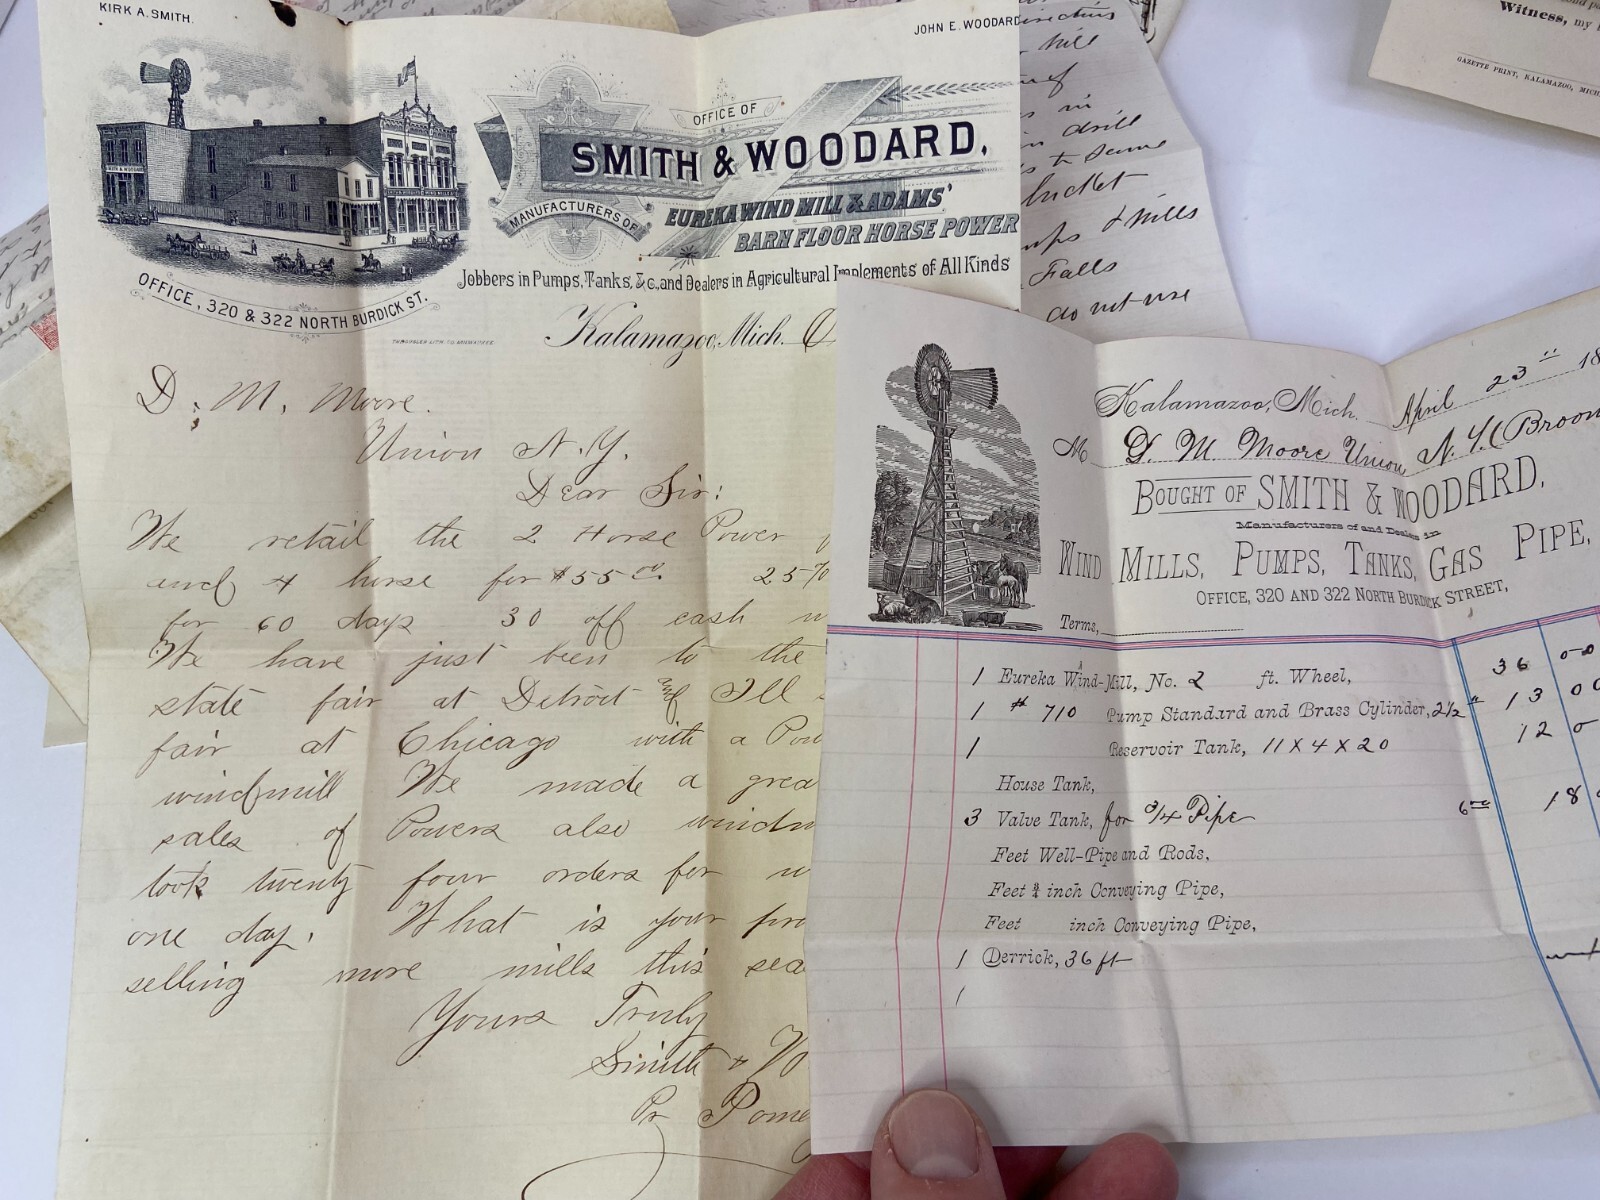 KIRK A. SMITH.
JOHN E. WOODARD
OFFICE OF
SMITH & WOODARD.
MANUFACTURERS OF
EUREKA WIND MILL & ADAMS'
BARN FLOOR HORSE POWER
Jobbers in Pumps, Tanks, &c, and Dealers in Agricultural Implements of All Kinds
OFFICE, 320 & 322 NORTH BURDICK ST.
Kalamazoo, Mich.
D. M. Moore.
Union N.Y.
Dear Sir:
We retail the 2 Horse Power
and 4 horse for $55 00. 25%
for 60 days 30 off cash
We have just been to the
state fair at Detroit and Ill
fair at Chicago with a Pow
windmill We made a grea
sales of Powers also windm
took twenty four orders for
one day. What is your pro
selling more mills this sea
Yours Truly
Smith & Wo
Pr Pome
mill
in
drill
to same
bucket
mps & mills
Falls
do not use
Witness, my
GAZETTE PRINT, KALAMAZOO, MICH
Kalamazoo, Mich. April 23" 18
M D. M Moore Union N.Y. (Broom
BOUGHT OF SMITH & WOODARD,
Manufacturers of and Dealers in
WIND MILLS, PUMPS, TANKS, GAS PIPE,
OFFICE, 320 AND 322 NORTH BURDICK STREET,
Terms,
1 Eureka Wind-Mill, No. 2 ft. Wheel, 36 00
1 # 710 Pump Standard and Brass Cylinder, 2½" 13 00
1 Reservoir Tank, 11 X 4 X 20 12 0
House Tank,
3 Valve Tank, for ¾ Pipe 6 00 18
Feet Well-Pipe and Rods,
Feet ¾ inch Conveying Pipe,
Feet inch Conveying Pipe,
1 Derrick, 36 ft
1